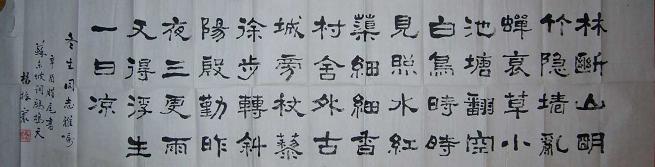 林斷山明
竹隐墻亂
蟬衰草小
池塘翻空
白鳥時時
見照水紅
蕖細細香
村舍外古
城旁杖藜
徐步轉斜
陽殷勤昨
夜三更雨
又得浮生
一日凉
生同志雅嘱
辛酉腊尾書
蘇东坡词鹧鸪天
楊